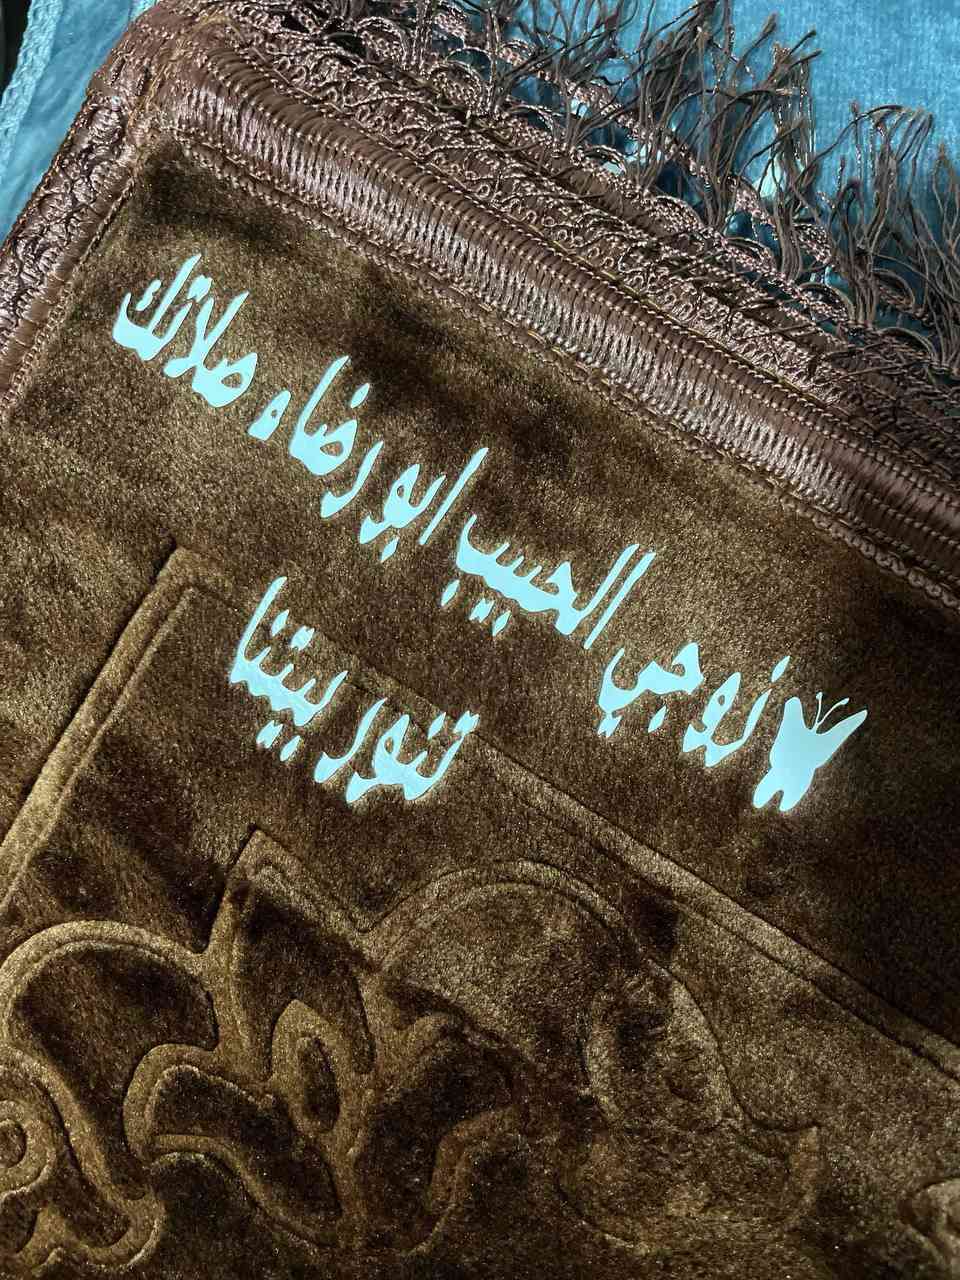 زوجي الحبيب ابو رضاء صلاتك
تنور بيتنا